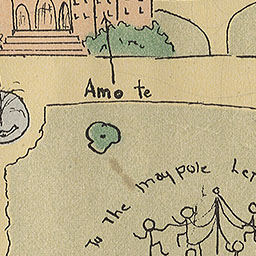 Amo te
To The maypole Let